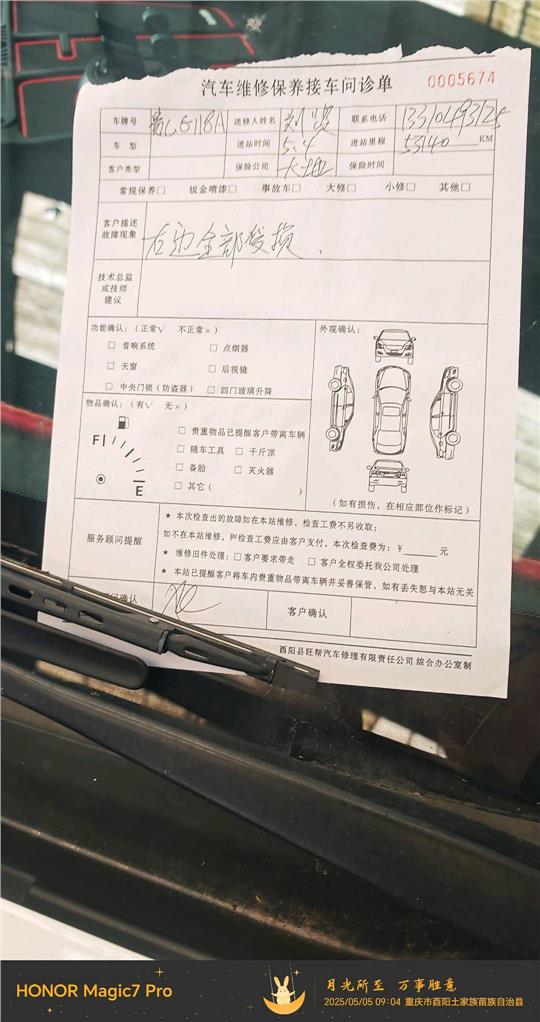 汽车维修保养接车问诊单 0005674
车牌号 送修人姓名 刘 联系电话
车 型 进站时间 5.4 进站里程 53140 KM
客户类型 保险公司 大地 保险时间
常规保养□ 钣金喷漆□ 事故车□ 大修□ 小修□ 其他□
客户描述
故障现象
右边全部受损.
技术总监
或技师
建议
功能确认：（正常√ 不正常×） 外观确认：
□ 音响系统 □ 点烟器
□ 天窗 □ 后视镜
□ 中央门锁（防盗器） □ 四门玻璃升降
物品确认：（有√ 无×）
□ 贵重物品已提醒客户带离车辆
F □ 随车工具 □ 千斤顶
□ 备胎 □ 灭火器
E □ 其它（ ）
（如有损伤，在相应部位作标记）
服务顾问提醒
★ 本次检查出的故障如在本站维修，检查工费不另收取；
如不在本站维修，则检查工费应由客户支付。本次检查费为：￥______元
★ 维修旧件处理：□ 客户要求带走 □ 客户全权委托我公司处理
★ 本站已提醒客户将车内贵重物品带离车辆并妥善保管，如有丢失恕与本站无关
问确认 客户确认
酉阳县旺帮汽车修理有限责任公司 综合办公室制
HONOR Magic7 Pro
月光所至 万事胜意
2025/05/05 09:04 重庆市酉阳土家族苗族自治县